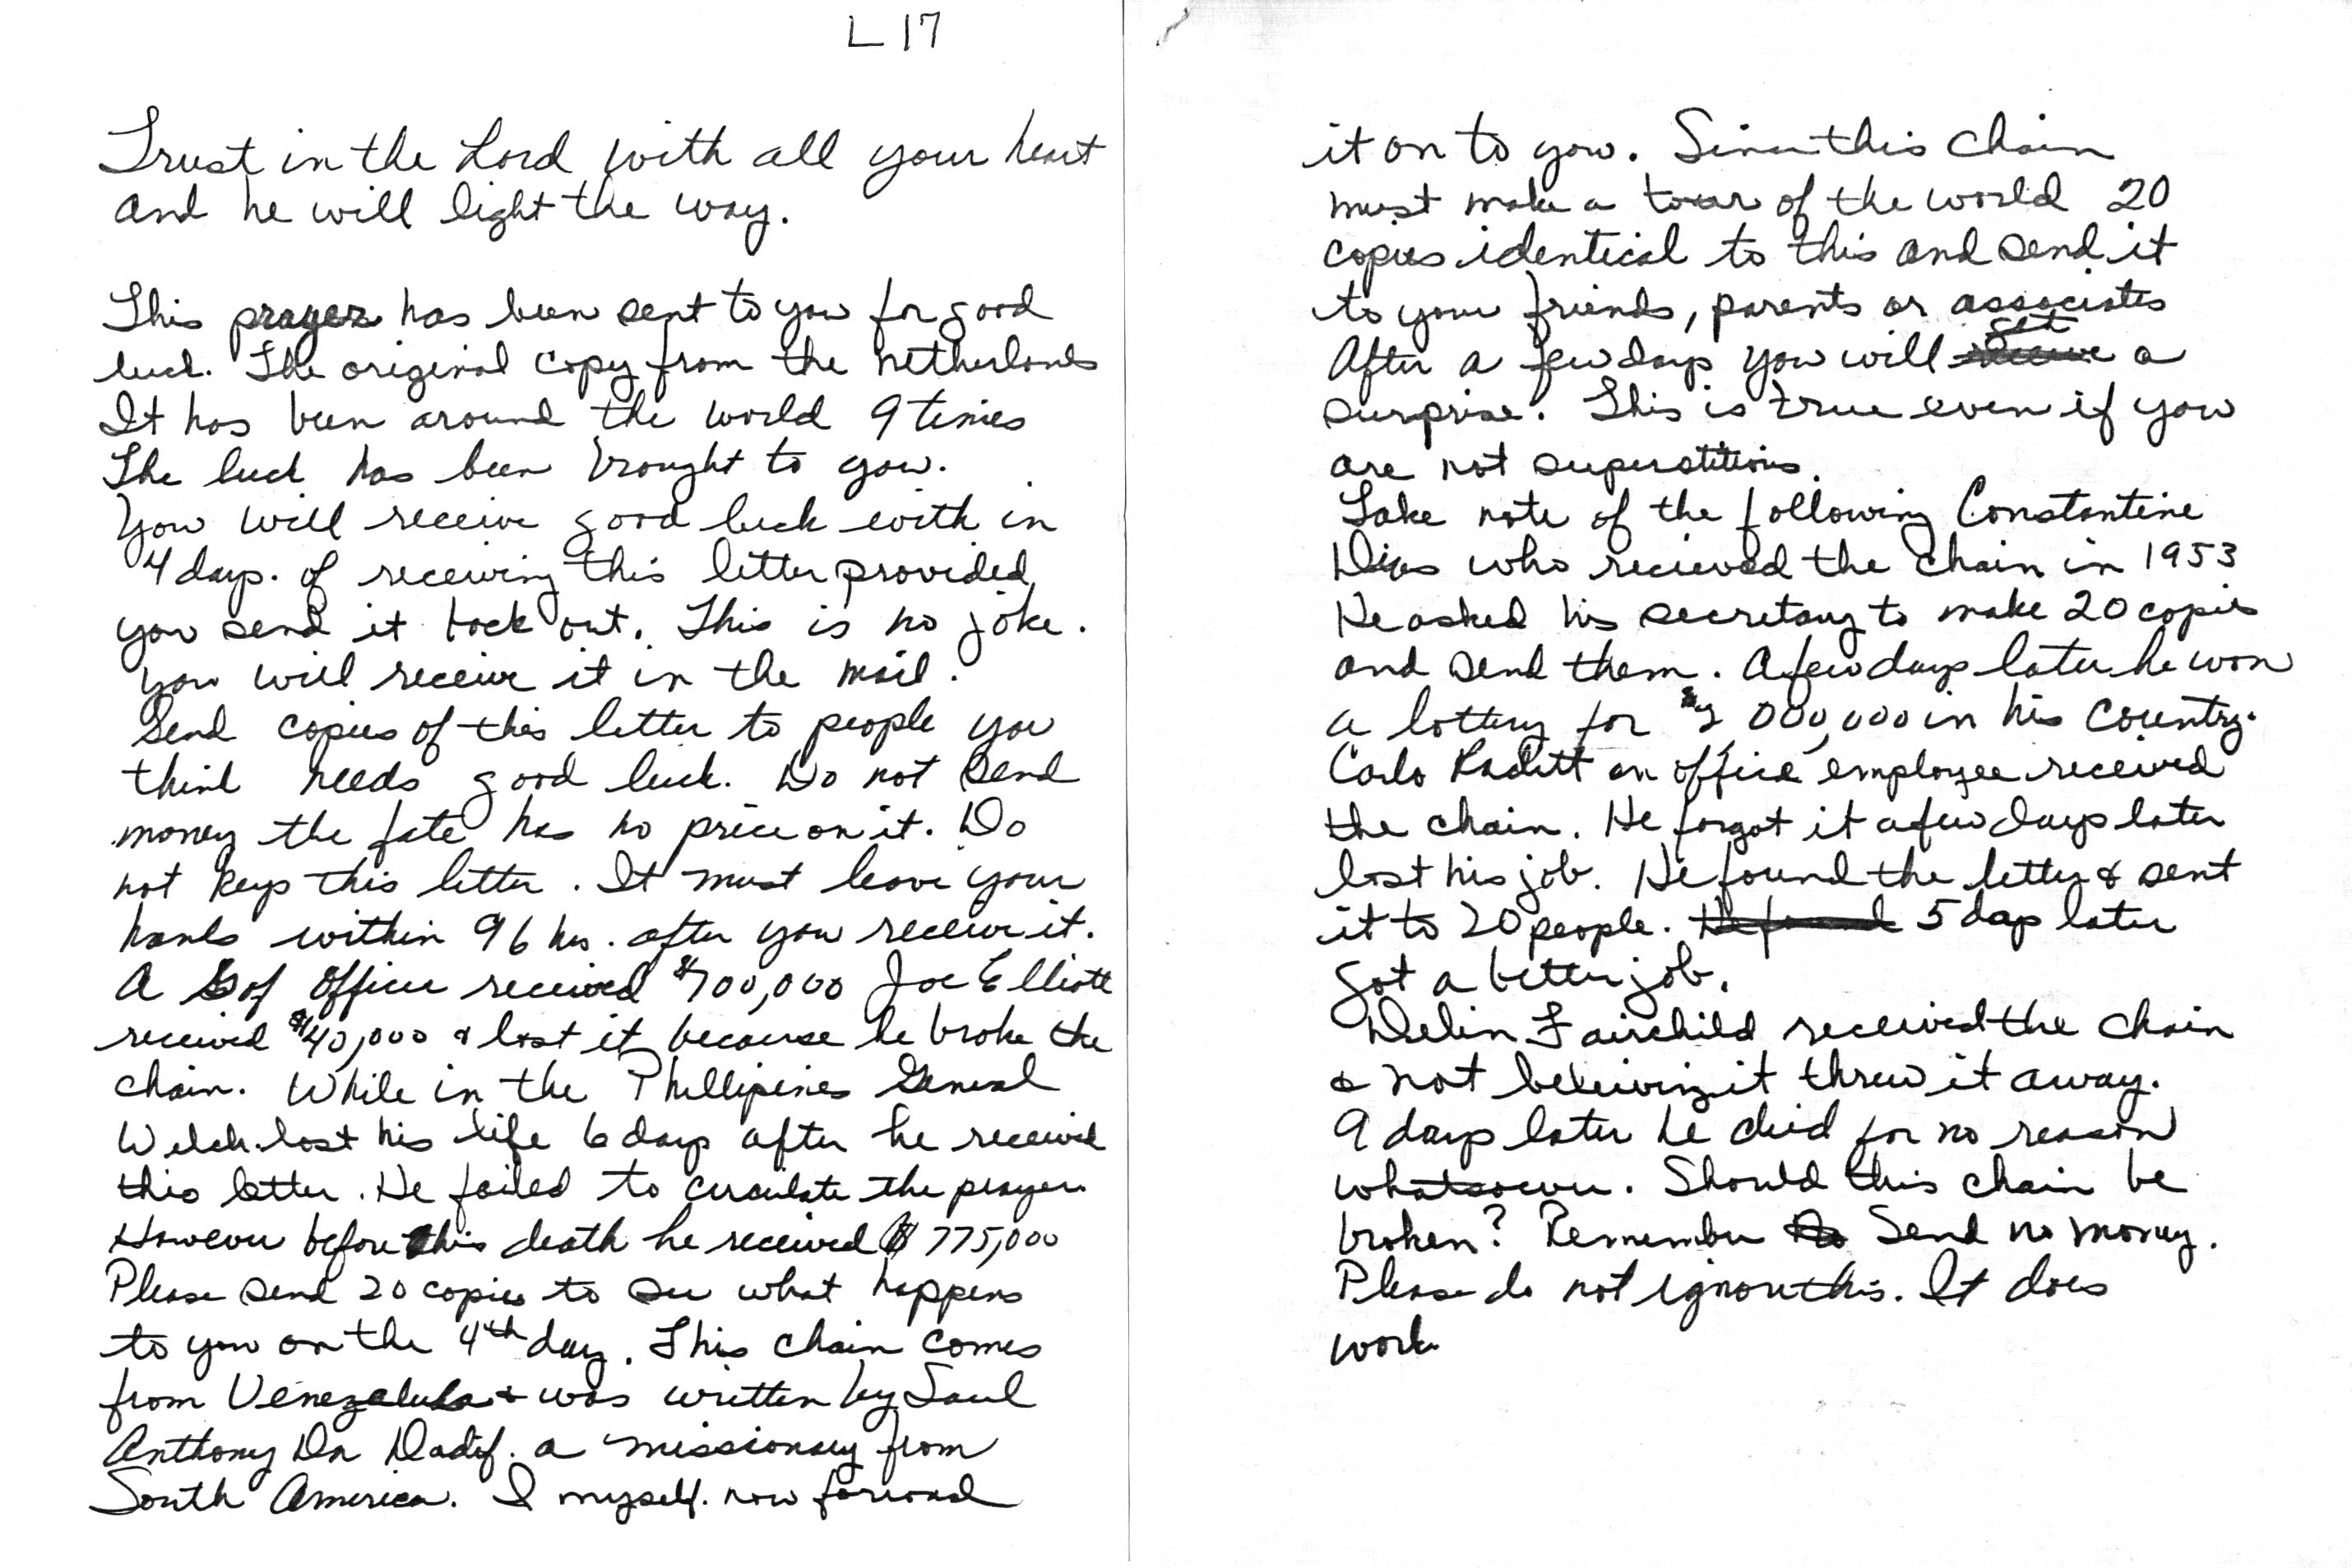 L 17
Trust in the Lord with all your heart
and he will light the way.
This prayer has been sent to you for good
luck. The original copy from the netherlands
It has been around the world 9 times
The luck has been brought to you.
You will receive good luck with in
4 days. of receiving this letter provided
you send it back out. This is no joke.
you will receive it in the mail.
Send copies of this letter to people you
think needs good luck. Do not send
money the fate has no price on it. Do
not keep this letter. It must leave your
hands within 96 hrs. after you receive it.
A of officer received $700,000 Joe Elliott
received $40,000 & lost it because he broke the
chain. While in the Phillipines General
Welch lost his life 6 days after he received
this letter. He failed to circulate the prayer.
However before this death he received $ 775,000
Please send 20 copies to see what happens
to you on the 4th day. This chain comes
from Venezalula & was written by Saul
Anthony Da Dadif. a missionary from
South America. I myself. now forward
it on to you. Since this chain
must make a tour of the world 20
copies identical to this and send it
to your friends, parents or associates
After a few days you will get a
surprise. This is true even if you
are not superstitious.
Take note of the following Constantine
Dias who recieved the chain in 1953
He asked his secretary to make 20 copies
and send them. A few days later he won
a lottery for 000,000 in his country.
Carlo Raditt an office employee received
the chain. He forgot it a few days later
lost his job. He found the letter & sent
it to 20 people. 5 days later
got a better job.
Delin Fairchild received the chain
& not beleiving it threw it away.
9 days later he died for no reason
whatsoever. Should this chain be
broken? Remember Send no money.
Please do not ignore this. It does
work